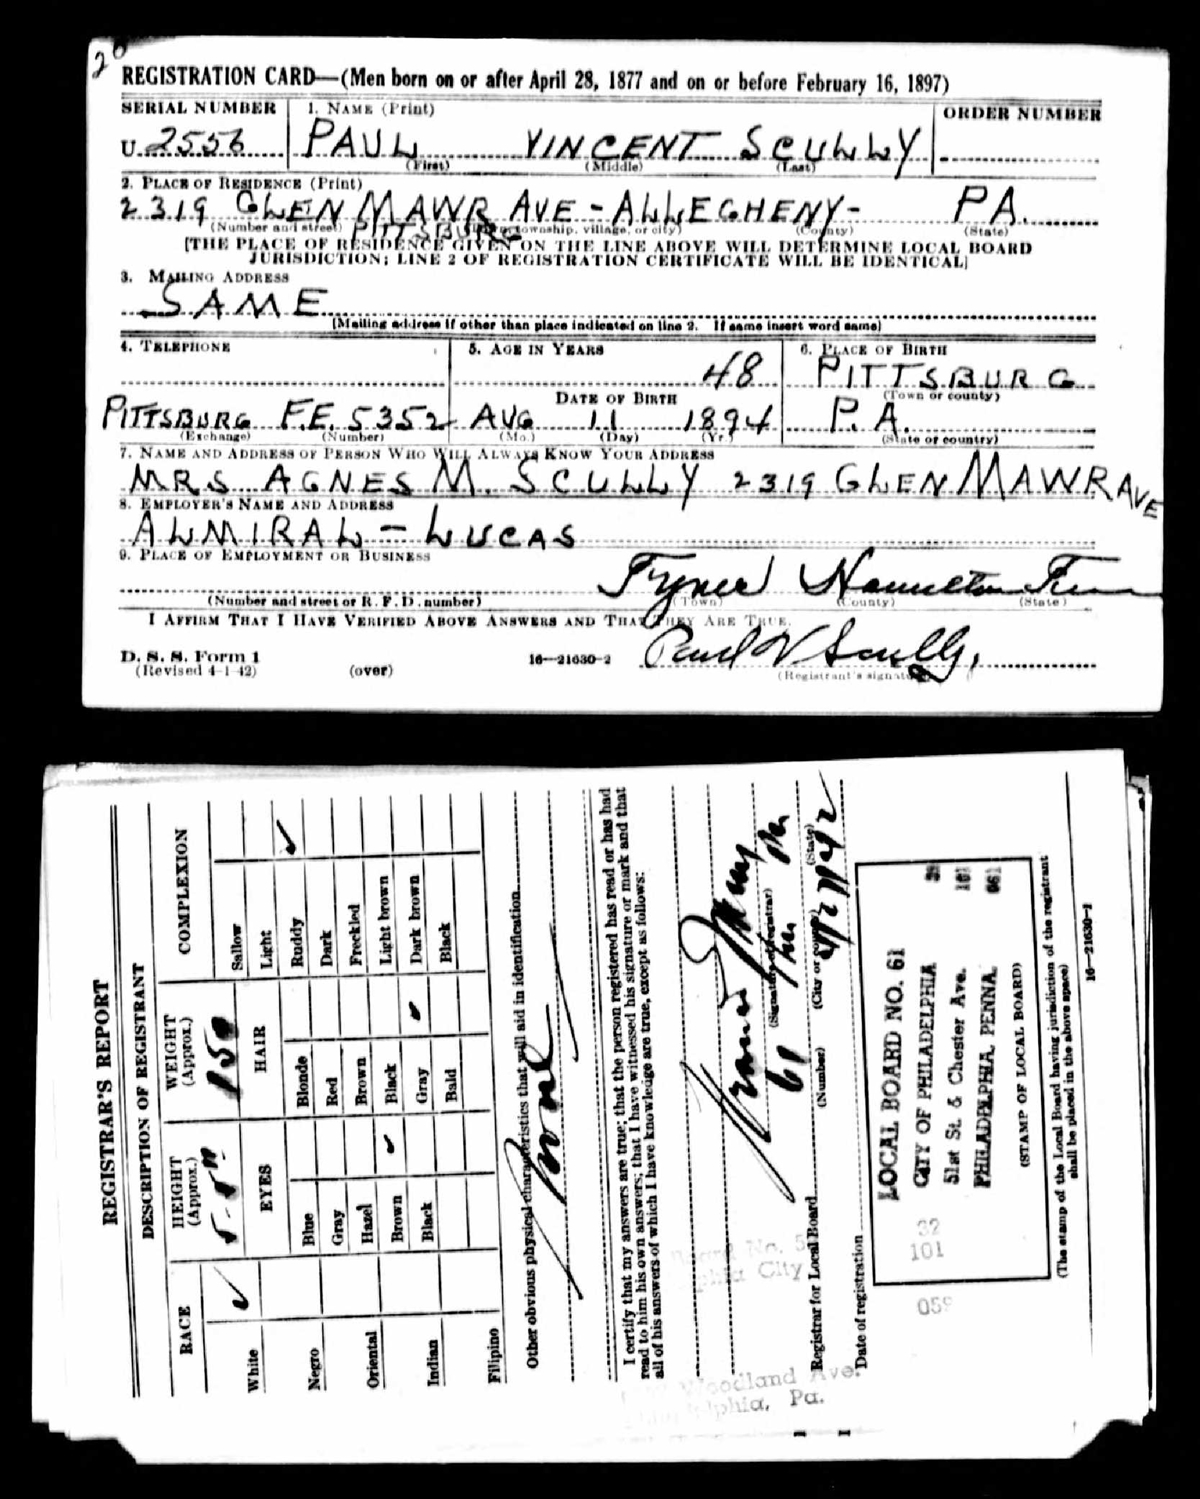 20
REGISTRATION CARD—(Men born on or after April 28, 1877 and on or before February 16, 1897)
SERIAL NUMBER
1. NAME (Print)
ORDER NUMBER
U 2556
PAUL VINCENT SCULLY
(First) (Middle) (Last)
2. PLACE OF RESIDENCE (Print)
2319 GLEN MAWR AVE - ALLEGHENY - PA.
(Number and street) PITTSBURG township, village, or city) (County) (State)
[THE PLACE OF RESIDENCE GIVEN ON THE LINE ABOVE WILL DETERMINE LOCAL BOARD
JURISDICTION; LINE 2 OF REGISTRATION CERTIFICATE WILL BE IDENTICAL]
3. MAILING ADDRESS
SAME
[Mailing address if other than place indicated on line 2. If same insert word same]
4. TELEPHONE
5. AGE IN YEARS
6. PLACE OF BIRTH
48
PITTSBURG
(Town or county)
DATE OF BIRTH
PITTSBURG F.E. 5352
AUG 11 1894
P.A.
(Exchange) (Number)
(Mo.) (Day) (Yr.)
(State or country)
7. NAME AND ADDRESS OF PERSON WHO WILL ALWAYS KNOW YOUR ADDRESS
MRS AGNES M. SCULLY 2319 GLEN MAWR AVE
8. EMPLOYER'S NAME AND ADDRESS
ALMIRAL - LUCAS
9. PLACE OF EMPLOYMENT OR BUSINESS
Tyner Hamilton Tenn
(Number and street or R. F. D. number) (Town) (County) (State)
I AFFIRM THAT I HAVE VERIFIED ABOVE ANSWERS AND THAT THEY ARE TRUE.
Paul V Scully.
D. S. S. Form 1
(Revised 4-1-42)
(over)
16—21630-2
(Registrant's signature)
REGISTRAR'S REPORT
DESCRIPTION OF REGISTRANT
RACE
HEIGHT (Approx.)
WEIGHT (Approx.)
COMPLEXION
White ✓
5-5"
150
Sallow
EYES
HAIR
Light
Negro
Blue
Blonde
Ruddy ✓
Gray
Red
Dark
Oriental
Hazel
Brown
Freckled
Brown ✓
Black
Light brown
Indian
Black
Gray ✓
Dark brown
Bald
Black
Filipino
Other obvious physical characteristics that will aid in identification
None
I certify that my answers are true; that the person registered has read or has had
read to him his own answers; that I have witnessed his signature or mark and that
all of his answers of which I have knowledge are true, except as follows:
(Signature of registrar)
Registrar for Local Board 61 Pa
(Number) (City or county) (State)
Date of registration 4/27/42
LOCAL BOARD NO. 61
CITY OF PHILADELPHIA
51st St. & Chester Ave.
PHILADELPHIA, PENNA.
39
101
061
32
101
059
(STAMP OF LOCAL BOARD)
(The stamp of the Local Board having jurisdiction of the registrant
shall be placed in the above space)
16—21630-1
Board No. 5
City
Woodland Ave.
Pa.